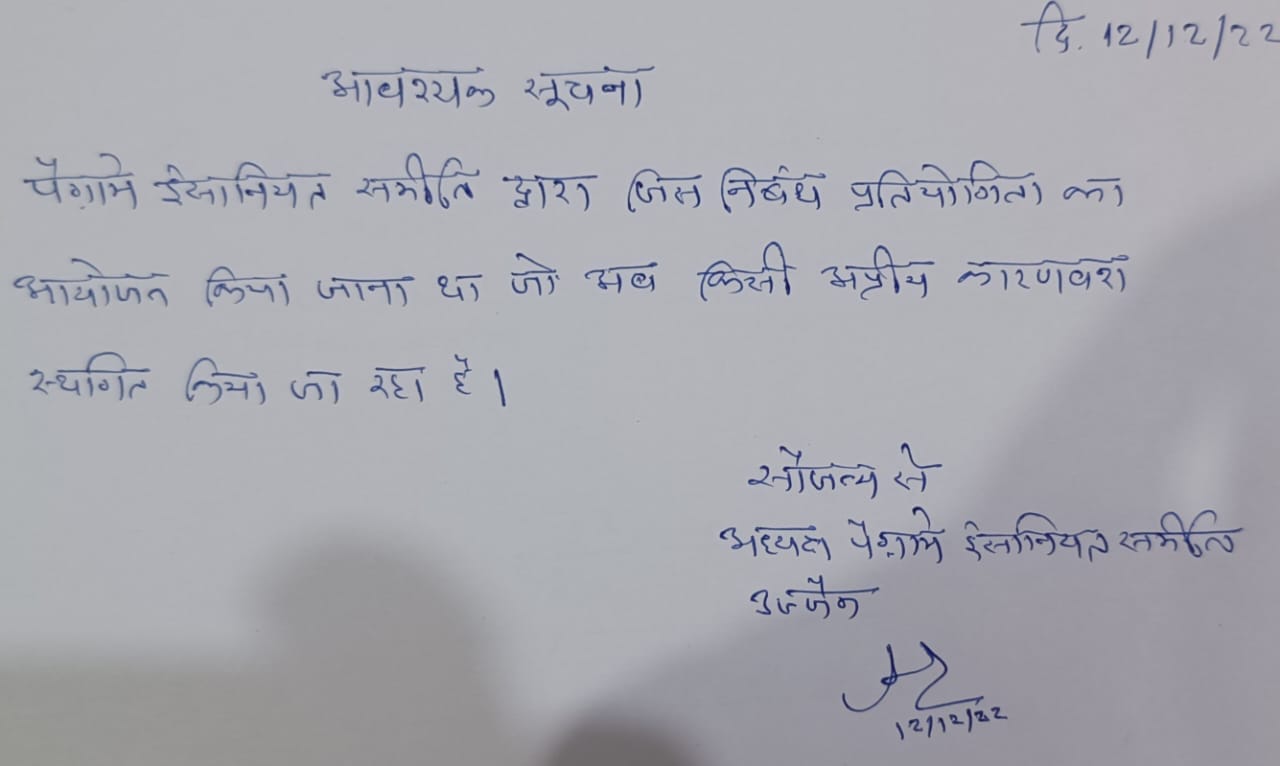 दि. 12/12/22
आवश्यक सूचना
पैग़ामे इंसानियत समीति द्वारा जिस निबंध प्रतियोगिता का
आयोजन किया जाना था जो अब किसी अप्रीय कारणवश
स्थगित किया जा रहा है।
सौजन्य से
अध्यक्ष पैग़ामे इंसानियत समीति
उज्जैन
12/12/22